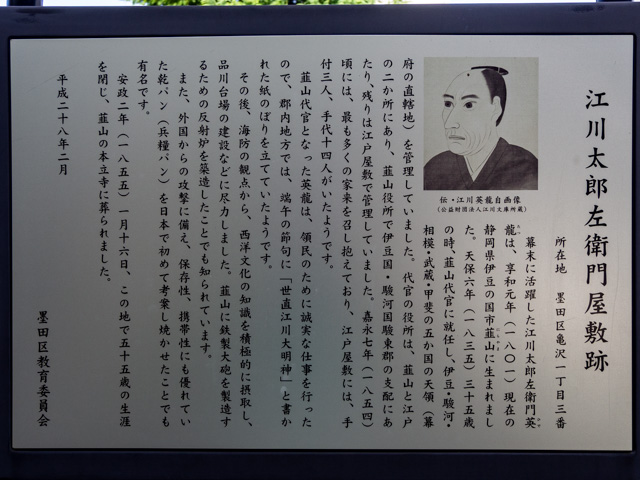 江川太郎左衛門屋敷跡
所在地　墨田区亀沢一丁目三番
幕末に活躍した江川太郎左衛門英
龍は、享和元年（一八〇一）現在の
静岡県伊豆の国市韮山に生まれまし
た。天保六年（一八三五）三十五歳
の時、韮山代官に就任し、伊豆・駿河・
相模・武蔵・甲斐の五か国の天領（幕
伝・江川英龍自画像
（公益財団法人江川文庫所蔵）
府の直轄地）を管理していました。代官の役所は、韮山と江戸
の二か所にあり、韮山役所で伊豆国・駿河国駿東郡の支配にあ
たり、残りは江戸屋敷で管理していました。嘉永七年（一八五四）
頃には、最も多くの家来を召し抱えており、江戸屋敷には、手
付三人、手代十四人がいたようです。
韮山代官となった英龍は、領民のために誠実な仕事を行った
ので、郡内地方では、端午の節句に「世直江川大明神」と書か
れた紙のぼりを立てていたようです。
その後、海防の観点から、西洋文化の知識を積極的に摂取し、
品川台場の建設などに尽力しました。韮山に鉄製大砲を製造す
るための反射炉を築造したことでも知られています。
また、外国からの攻撃に備え、保存性、携帯性にも優れてい
た乾パン（兵糧パン）を日本で初めて考案し焼かせたことでも
有名です。
安政二年（一八五五）一月十六日、この地で五十五歳の生涯
を閉じ、韮山の本立寺に葬られました。
平成二十八年二月
墨田区教育委員会